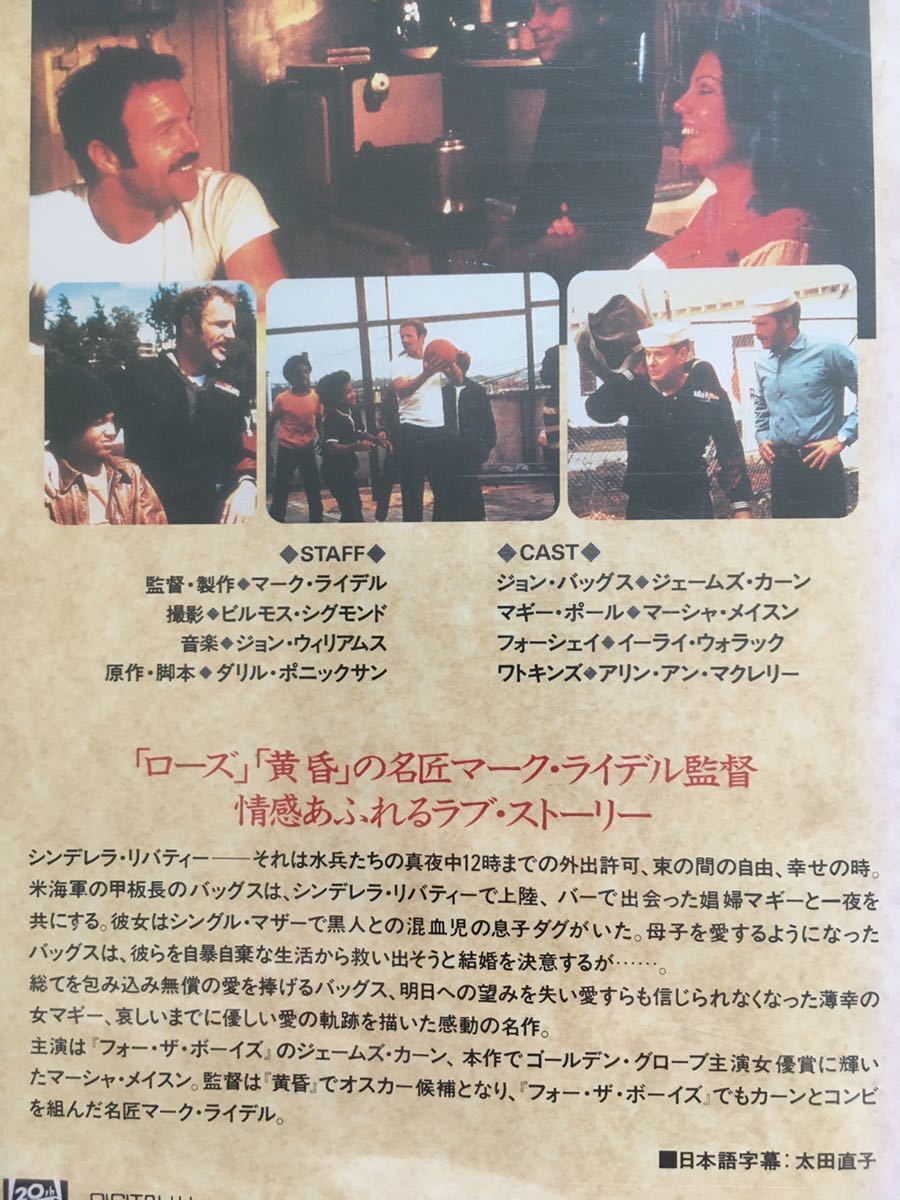 ◆STAFF◆
監督・製作◆マーク・ライデル
撮影◆ビルモス・シグモンド
音楽◆ジョン・ウィリアムス
原作・脚本◆ダリル・ポニックサン
◆CAST◆
ジョン・バッグス◆ジェームズ・カーン
マギー・ポール◆マーシャ・メイスン
フォーシェイ◆イーライ・ウォラック
ワトキンズ◆アリン・アン・マクレリー
「ローズ」「黄昏」の名匠マーク・ライデル監督
情感あふれるラブ・ストーリー
シンデレラ・リバティー——それは水兵たちの真夜中12時までの外出許可、束の間の自由、幸せの時。
米海軍の甲板長のバッグスは、シンデレラ・リバティーで上陸、バーで出会った娼婦マギーと一夜を
共にする。彼女はシングル・マザーで黒人との混血児の息子ダグがいた。母子を愛するようになった
バッグスは、彼らを自暴自棄な生活から救い出そうと結婚を決意するが……。
総てを包み込み無償の愛を捧げるバッグス、明日への望みを失い愛すらも信じられなくなった薄幸の
女マギー、哀しいまでに優しい愛の軌跡を描いた感動の名作。
主演は『フォー・ザ・ボーイズ』のジェームズ・カーン、本作でゴールデン・グローブ主演女優賞に輝い
たマーシャ・メイスン。監督は『黄昏』でオスカー候補となり、『フォー・ザ・ボーイズ』でもカーンとコンビ
を組んだ名匠マーク・ライデル。
■日本語字幕：太田直子
20th